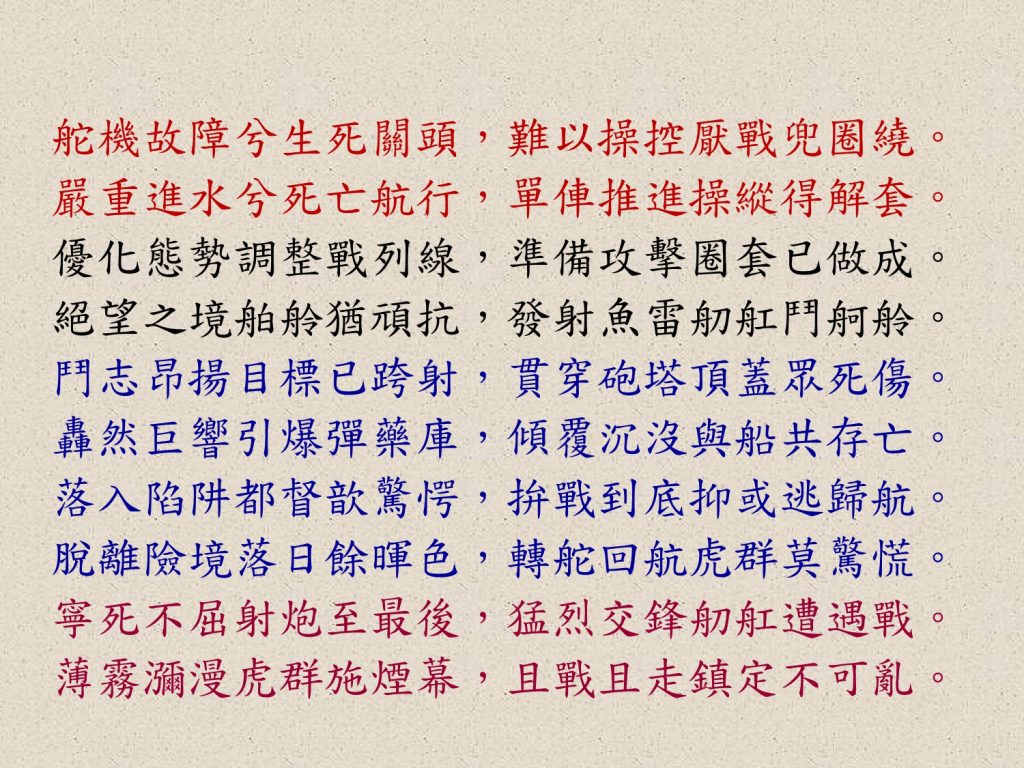 舵機故障兮生死關頭，難以操控厭戰兜圈繞。
嚴重進水兮死亡航行，單俥推進操縱得解套。
優化態勢調整戰列線，準備攻擊圈套已做成。
絕望之境舶舲猶頑抗，發射魚雷舠舡鬥舸舲。
鬥志昂揚目標已跨射，貫穿砲塔頂蓋眾死傷。
轟然巨響引爆彈藥庫，傾覆沉沒與船共存亡。
落入陷阱都督歆驚愕，拚戰到底抑或逃歸航。
脫離險境落日餘暉色，轉舵回航虎群莫驚慌。
寧死不屈射炮至最後，猛烈交鋒舠舡遭遇戰。
薄霧瀰漫虎群施煙幕，且戰且走鎮定不可亂。